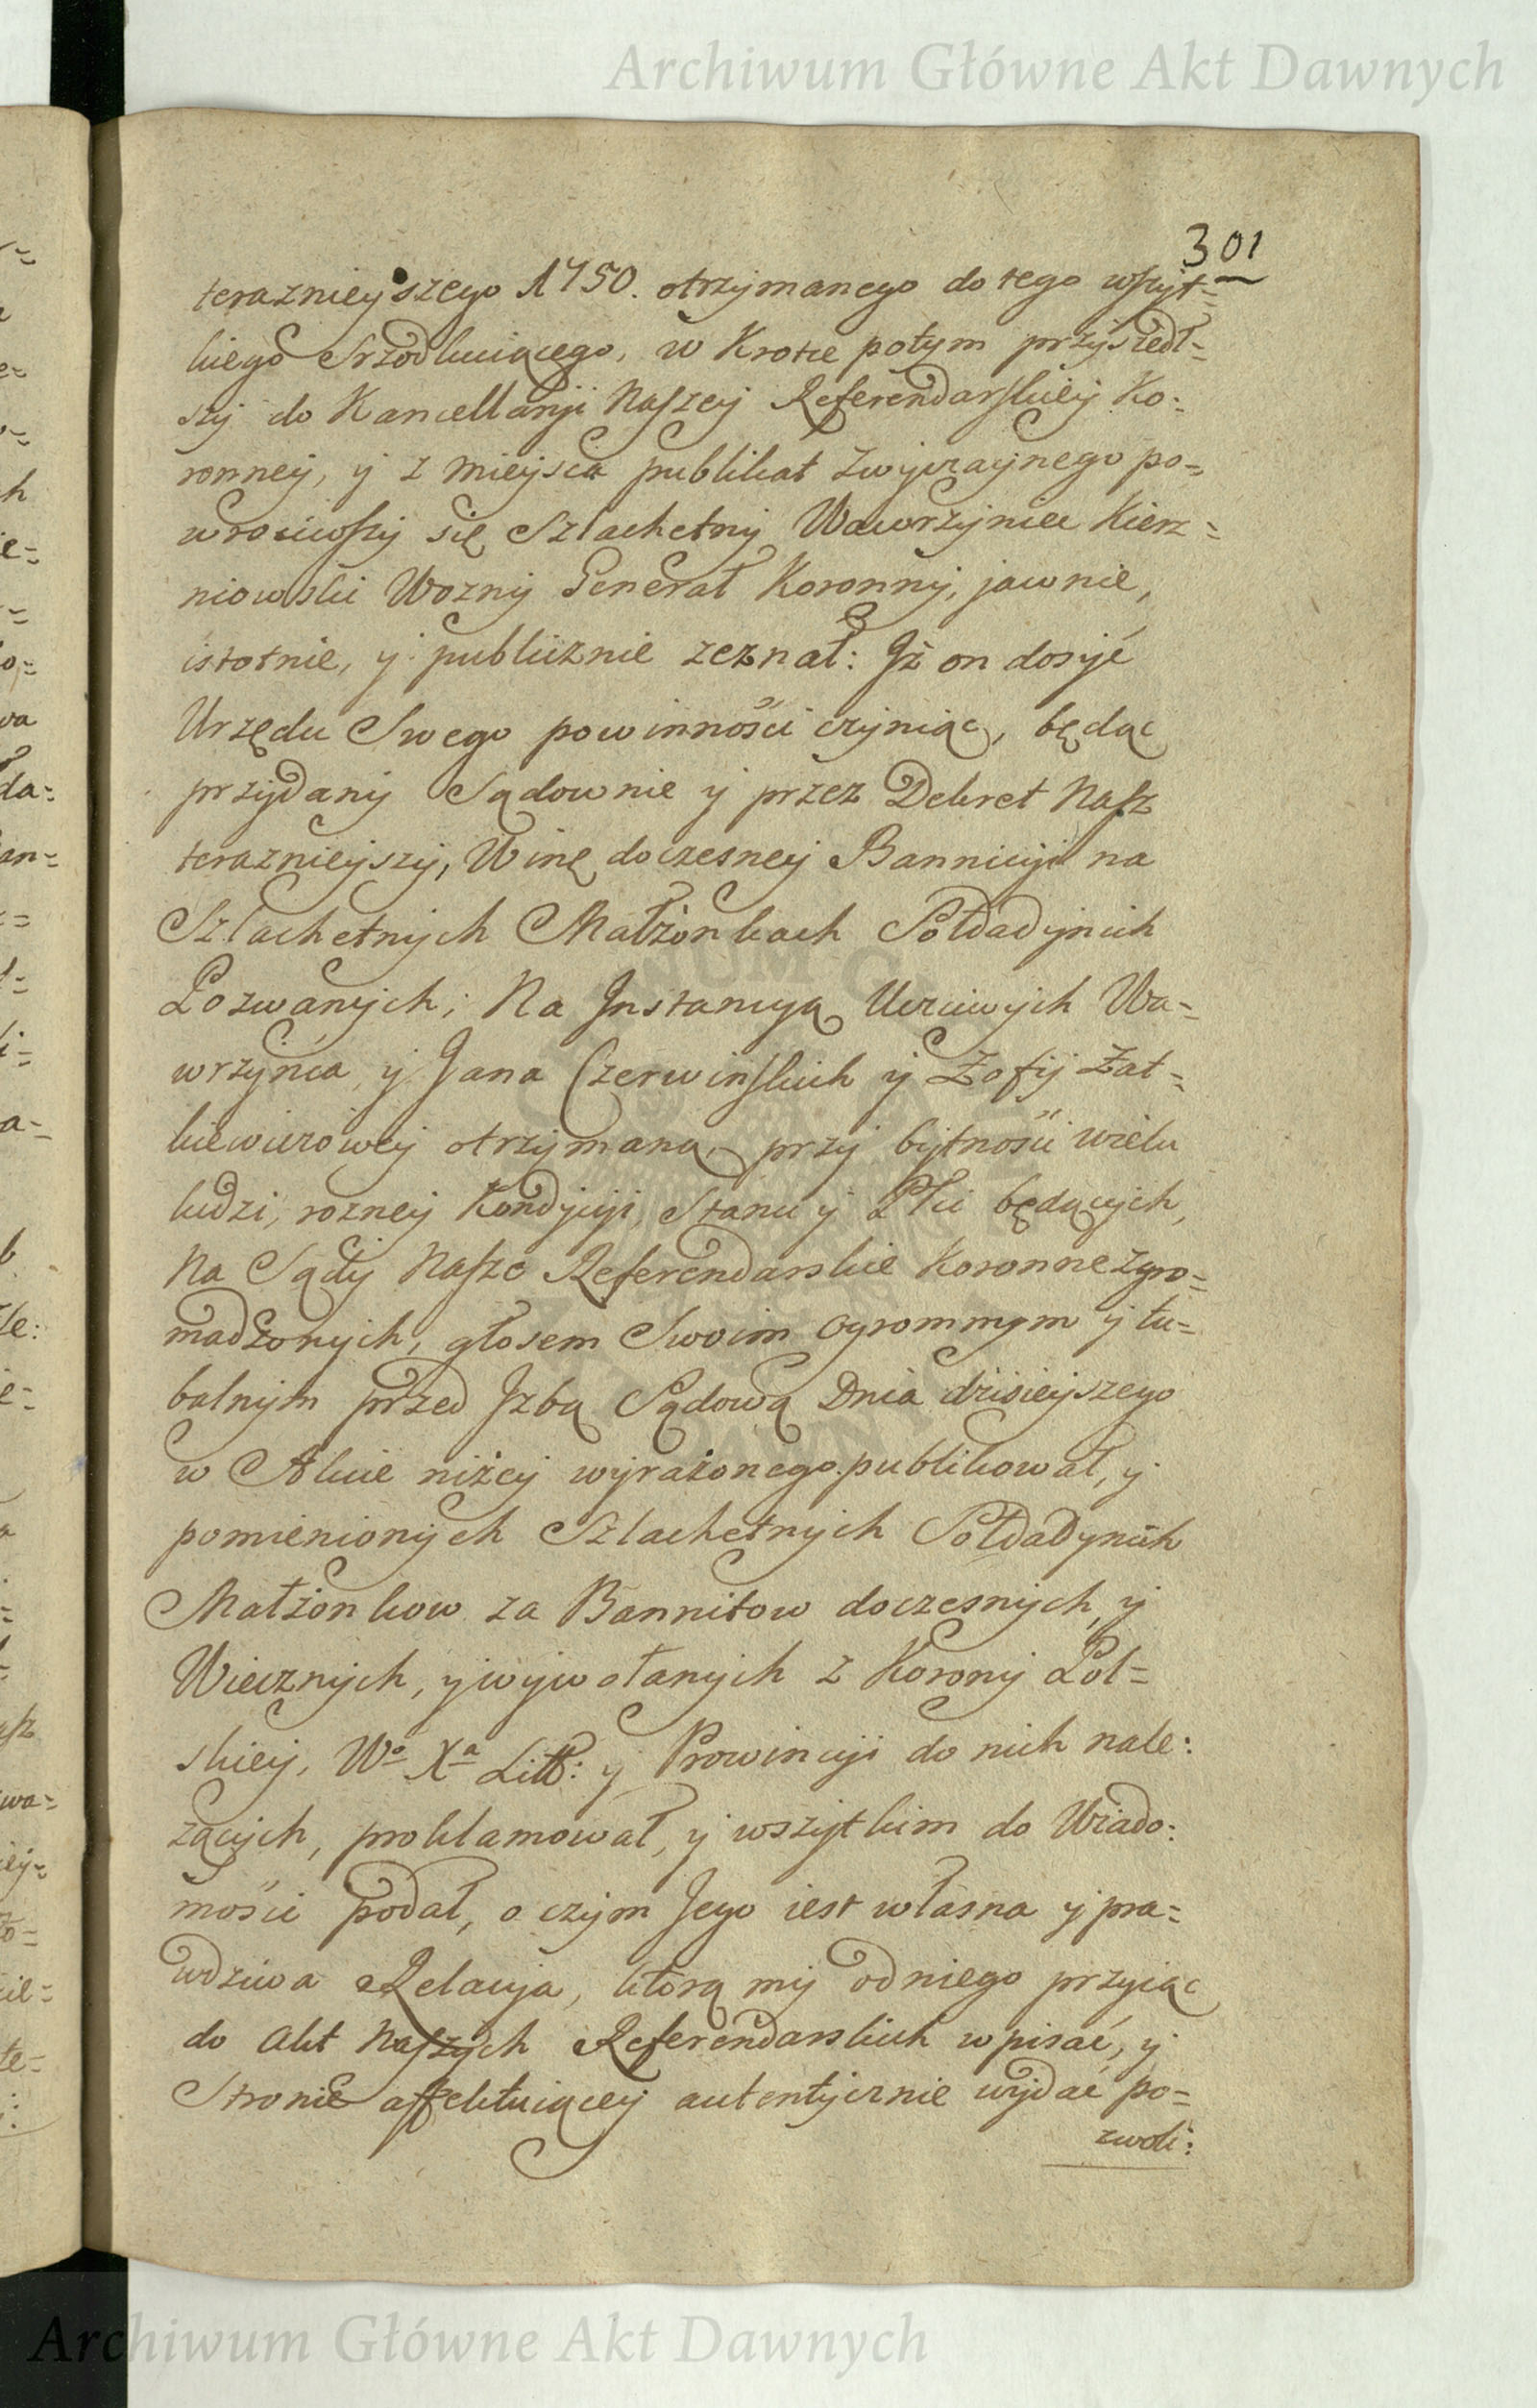 Archiwum Główne Akt Dawnych
301
terazniejszego 1750. otrzymanego do tego wszyt=
kiego srzodkuiącego, w Krotce potym przyszedł=
szy do Kancellaryi Naszey Referendarskiey Ko:
ronney, y z mieysca publikat zwyczaynego po=
wrociwszy się Szlachetny Wawrzyniec Kierz=
niowski Wozny Generał Koronny, jawnie,
istotnie, y publicznie zeznał: Jż on dosyć
Urzędu Swego powinności czyniąc, będąc
przydany Sądownie y przez Dekret Nasz
terazniejszy, Winę doczesney Bannicyi na
Szlachetnych Małżonkach Sołdadynich
Pozwanych; Na Jnstancyą Uczciwych Wa=
wrzyńca y Jana Czerwińskich y Zofij Żat=
kiewiczowey otrzymaną, przy bytności wielu
ludzi, rozney Kondycyi, Stanu y Płci będących,
Na Sądy Nasze Referendarskie Koronne zgro=
madzonych, głosem Swoim ogromnym y tu=
balnym przed Jzbą Sądową Dnia dzisieyszego
w Akcie niżey wyrażonego publikował, y
pomienionych Szlachetnych Sołdadynich
Małżonkow za Bannitow doczesnych, y
Wiecznych, y wywołanych z Korony Pol=
skiey, Wo Xa Litt: y Prowincyi do nich nale:
zących, proklamował, y wszytkim do Wiado:
mości podał, o czym Jego iest własna y pra=
wdziwa Relacyja, którą my od niego przyiąc
do Akt Naszych Referendarskich wpisać, y
Stronie affektuiącey autentycznie wydać po=
zwoli:
Archiwum Główne Akt Dawnych